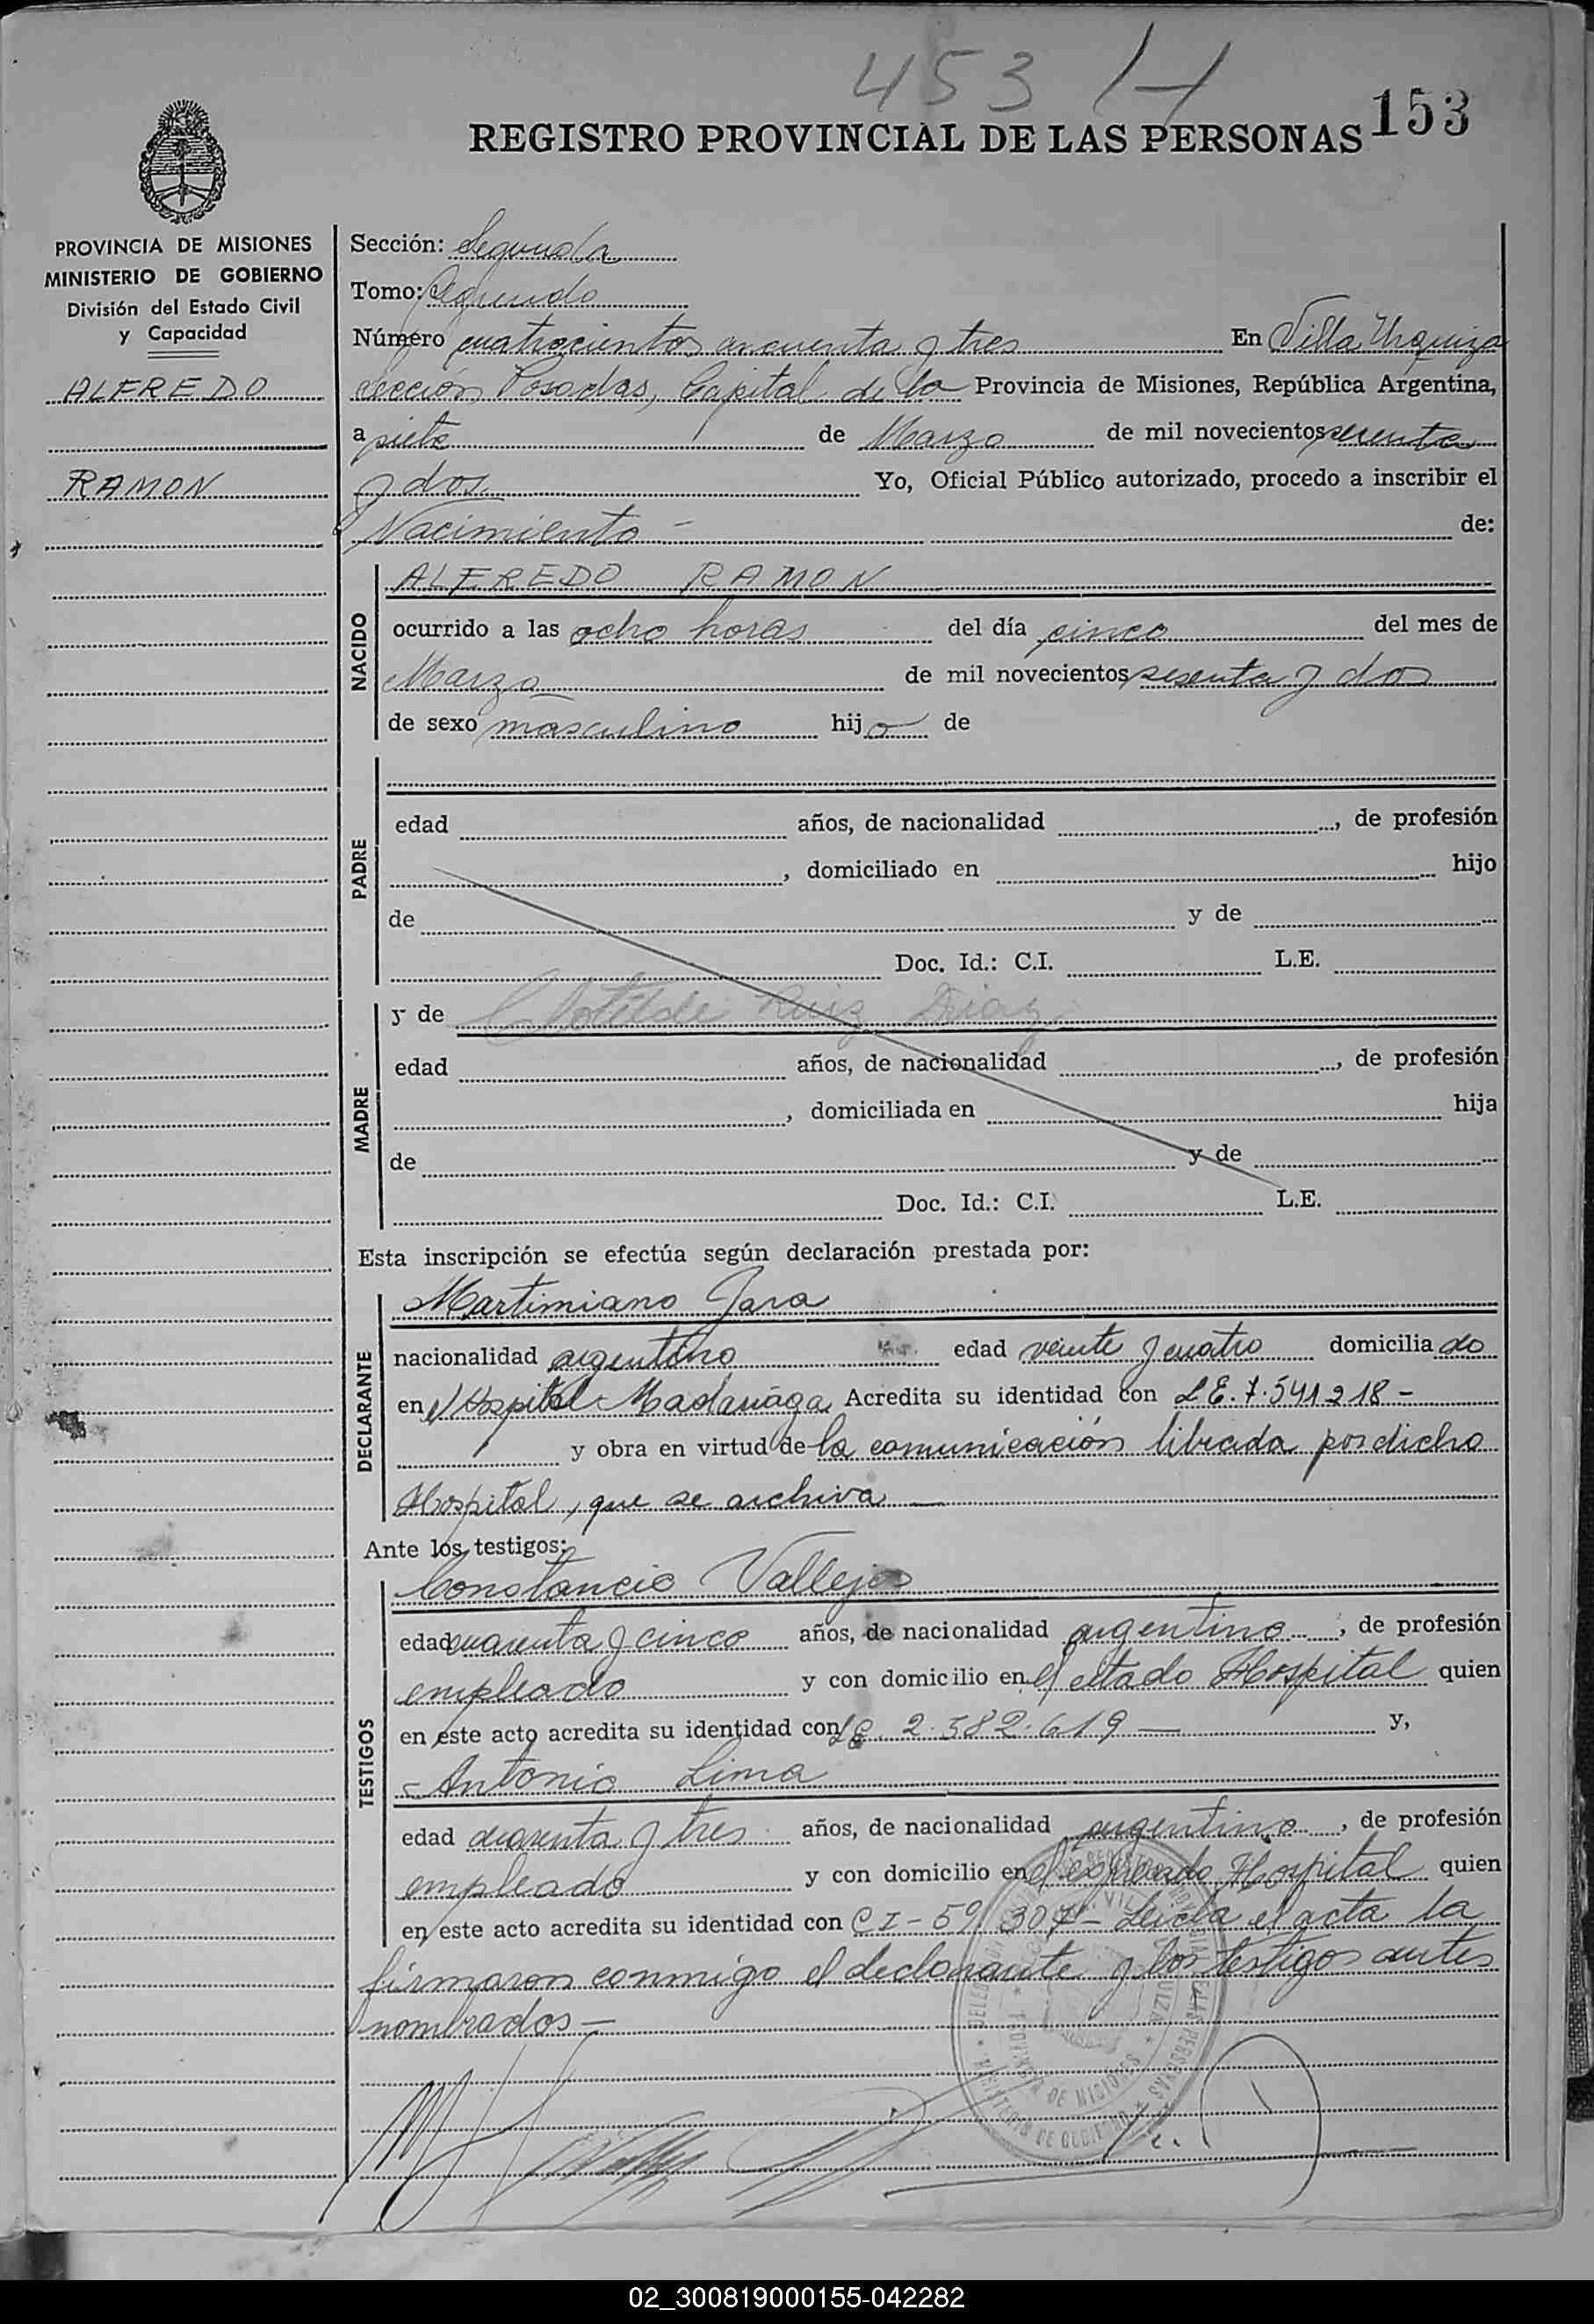 453
153
REGISTRO PROVINCIAL DE LAS PERSONAS
PROVINCIA DE MISIONES
MINISTERIO DE GOBIERNO
División del Estado Civil
y Capacidad
ALFREDO
RAMON
Sección: Segunda
Tomo: Segundo
Número cuatrocientos cincuenta y tres En Villa Urquiza
Sección Posadas, Capital de la Provincia de Misiones, República Argentina,
a siete de Marzo de mil novecientos sesenta
y dos. Yo, Oficial Público autorizado, procedo a inscribir el
Nacimiento - de:
NACIDO
ALFREDO RAMON
ocurrido a las ocho horas del día cinco del mes de
Marzo de mil novecientos sesenta y dos
de sexo masculino hijo de
PADRE
edad años, de nacionalidad , de profesión
, domiciliado en hijo
de y de
Doc. Id.: C.I. L.E.
MADRE
y de Clotilde Ruiz Diaz
edad años, de nacionalidad , de profesión
, domiciliada en hija
de y de
Doc. Id.: C.I. L.E.
Esta inscripción se efectúa según declaración prestada por:
DECLARANTE
Martimiano Jara
nacionalidad argentino edad veinte y cuatro domiciliado
en Hospital Madariaga Acredita su identidad con L.E. 7.541218 -
y obra en virtud de la comunicación librada por dicho
Hospital, que se archiva —
Ante los testigos:
TESTIGOS
Constancio Vallejos
edad cuarenta y cinco años, de nacionalidad argentino , de profesión
empleado y con domicilio en el citado Hospital quien
en este acto acredita su identidad con LE. 2.582.619 — y,
Antonio Lima
edad cuarenta y tres años, de nacionalidad argentino , de profesión
empleado y con domicilio en el expresado Hospital quien
en este acto acredita su identidad con CI - 59.307 - Leída el acta la
firmaron conmigo el declarante y los testigos antes
nombrados —
PROVINCIA DE MISIONES
MINISTERIO DE GOBIERNO
02_300819000155-042282